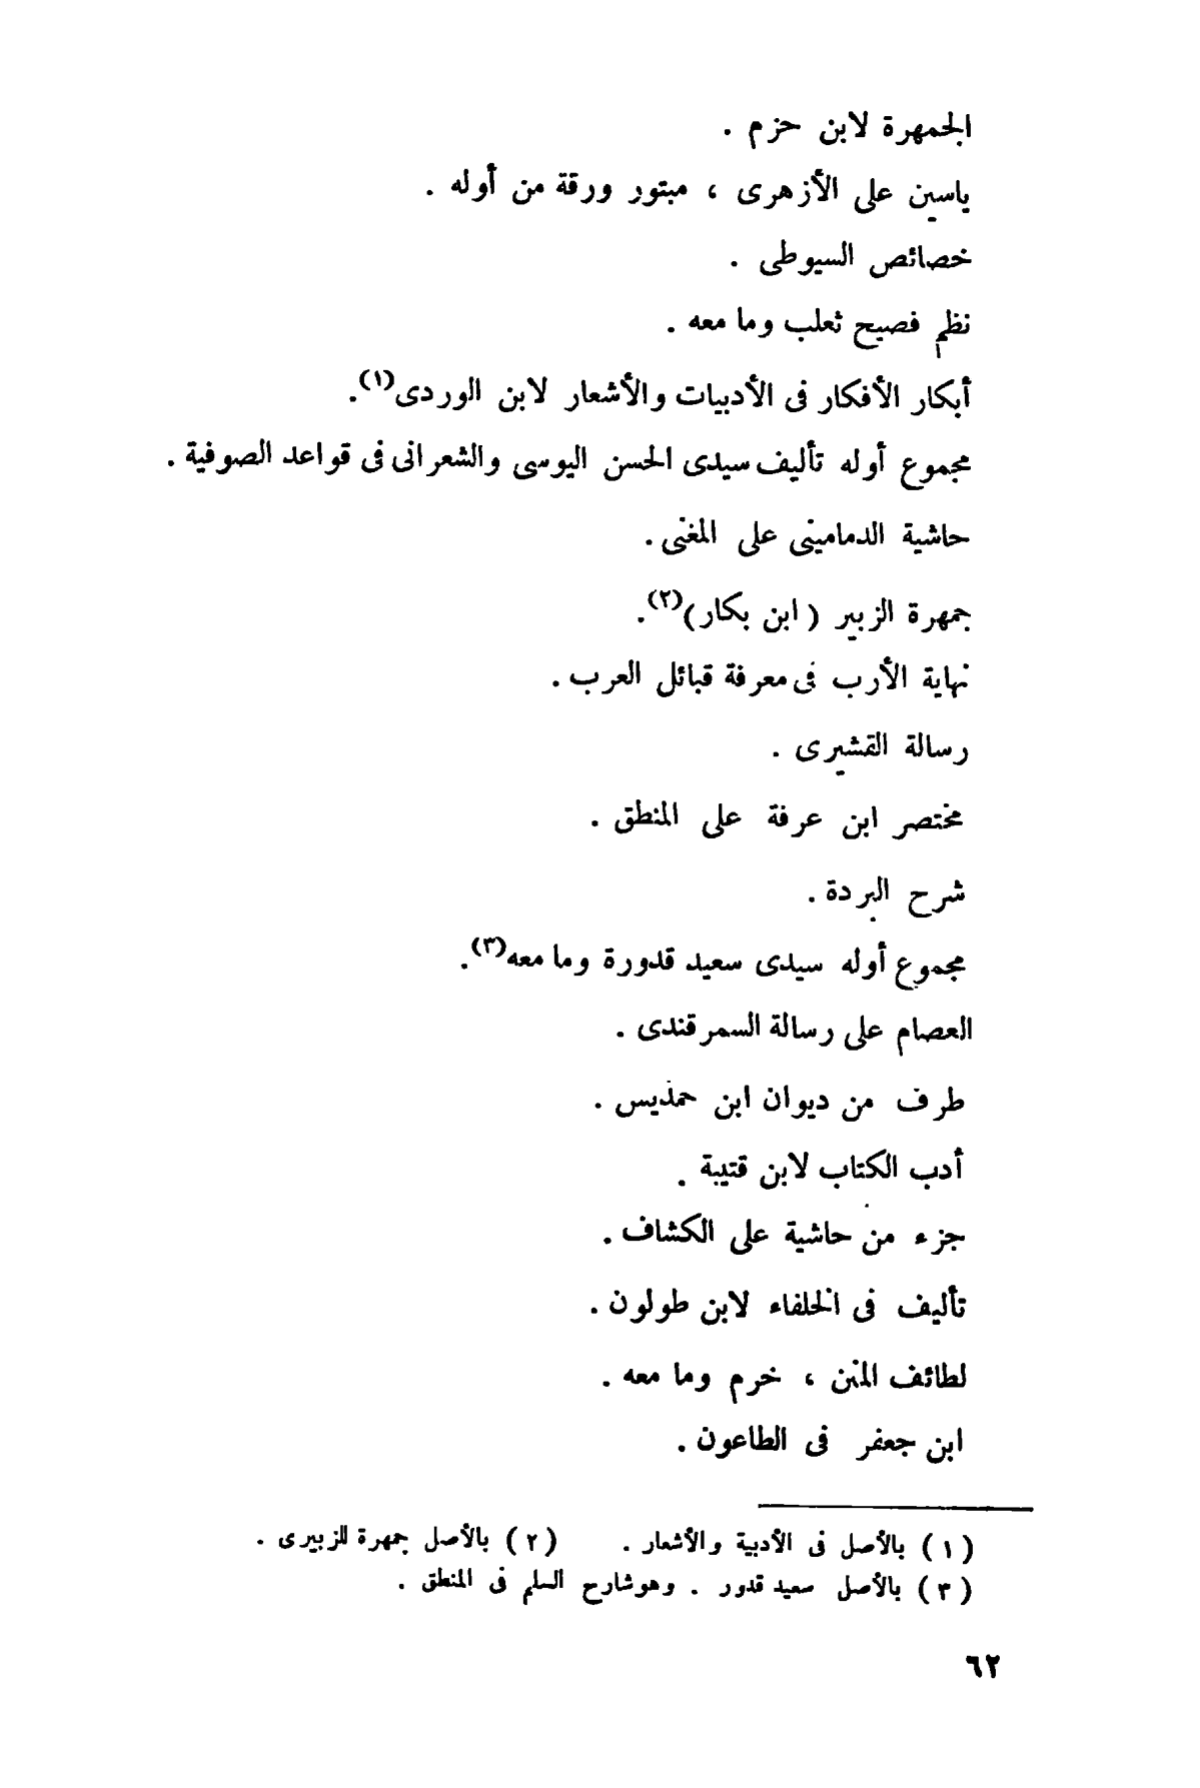 الجمهرة لابن حزم .
ياسين على الأزهرى ، مبتور ورقة من أوله .
خصائص السيوطى .
نظم فصيح ثعلب وما معه .
أبكار الأفكار فى الأدبيات والأشعار لابن الوردى(١).
مجموع أوله تأليف سيدى الحسن اليوسى والشعرانى فى قواعد الصوفية .
حاشية الدمامينى على المغنى .
جمهرة الزبير ( ابن بكار )(٢).
نهاية الأرب فى معرفة قبائل العرب .
رسالة القشيرى .
مختصر ابن عرفة على المنطق .
شرح البردة .
مجموع أوله سيدى سعيد قدورة وما معه(٣).
العصام على رسالة السمرقندى .
طرف من ديوان ابن حمذيس .
أدب الكتاب لابن قتيبة .
جزء من حاشية على الكشاف .
تأليف فى الخلفاء لابن طولون .
لطائف المنن ، خرم وما معه .
ابن جعفر فى الطاعون .
( ١ ) بالأصل فى الأدبية والأشعار . ( ٢ ) بالأصل جمهرة للزبيرى .
( ٣ ) بالأصل سعيد قدور . وهو شارح السلم فى المنطق .
٦٢